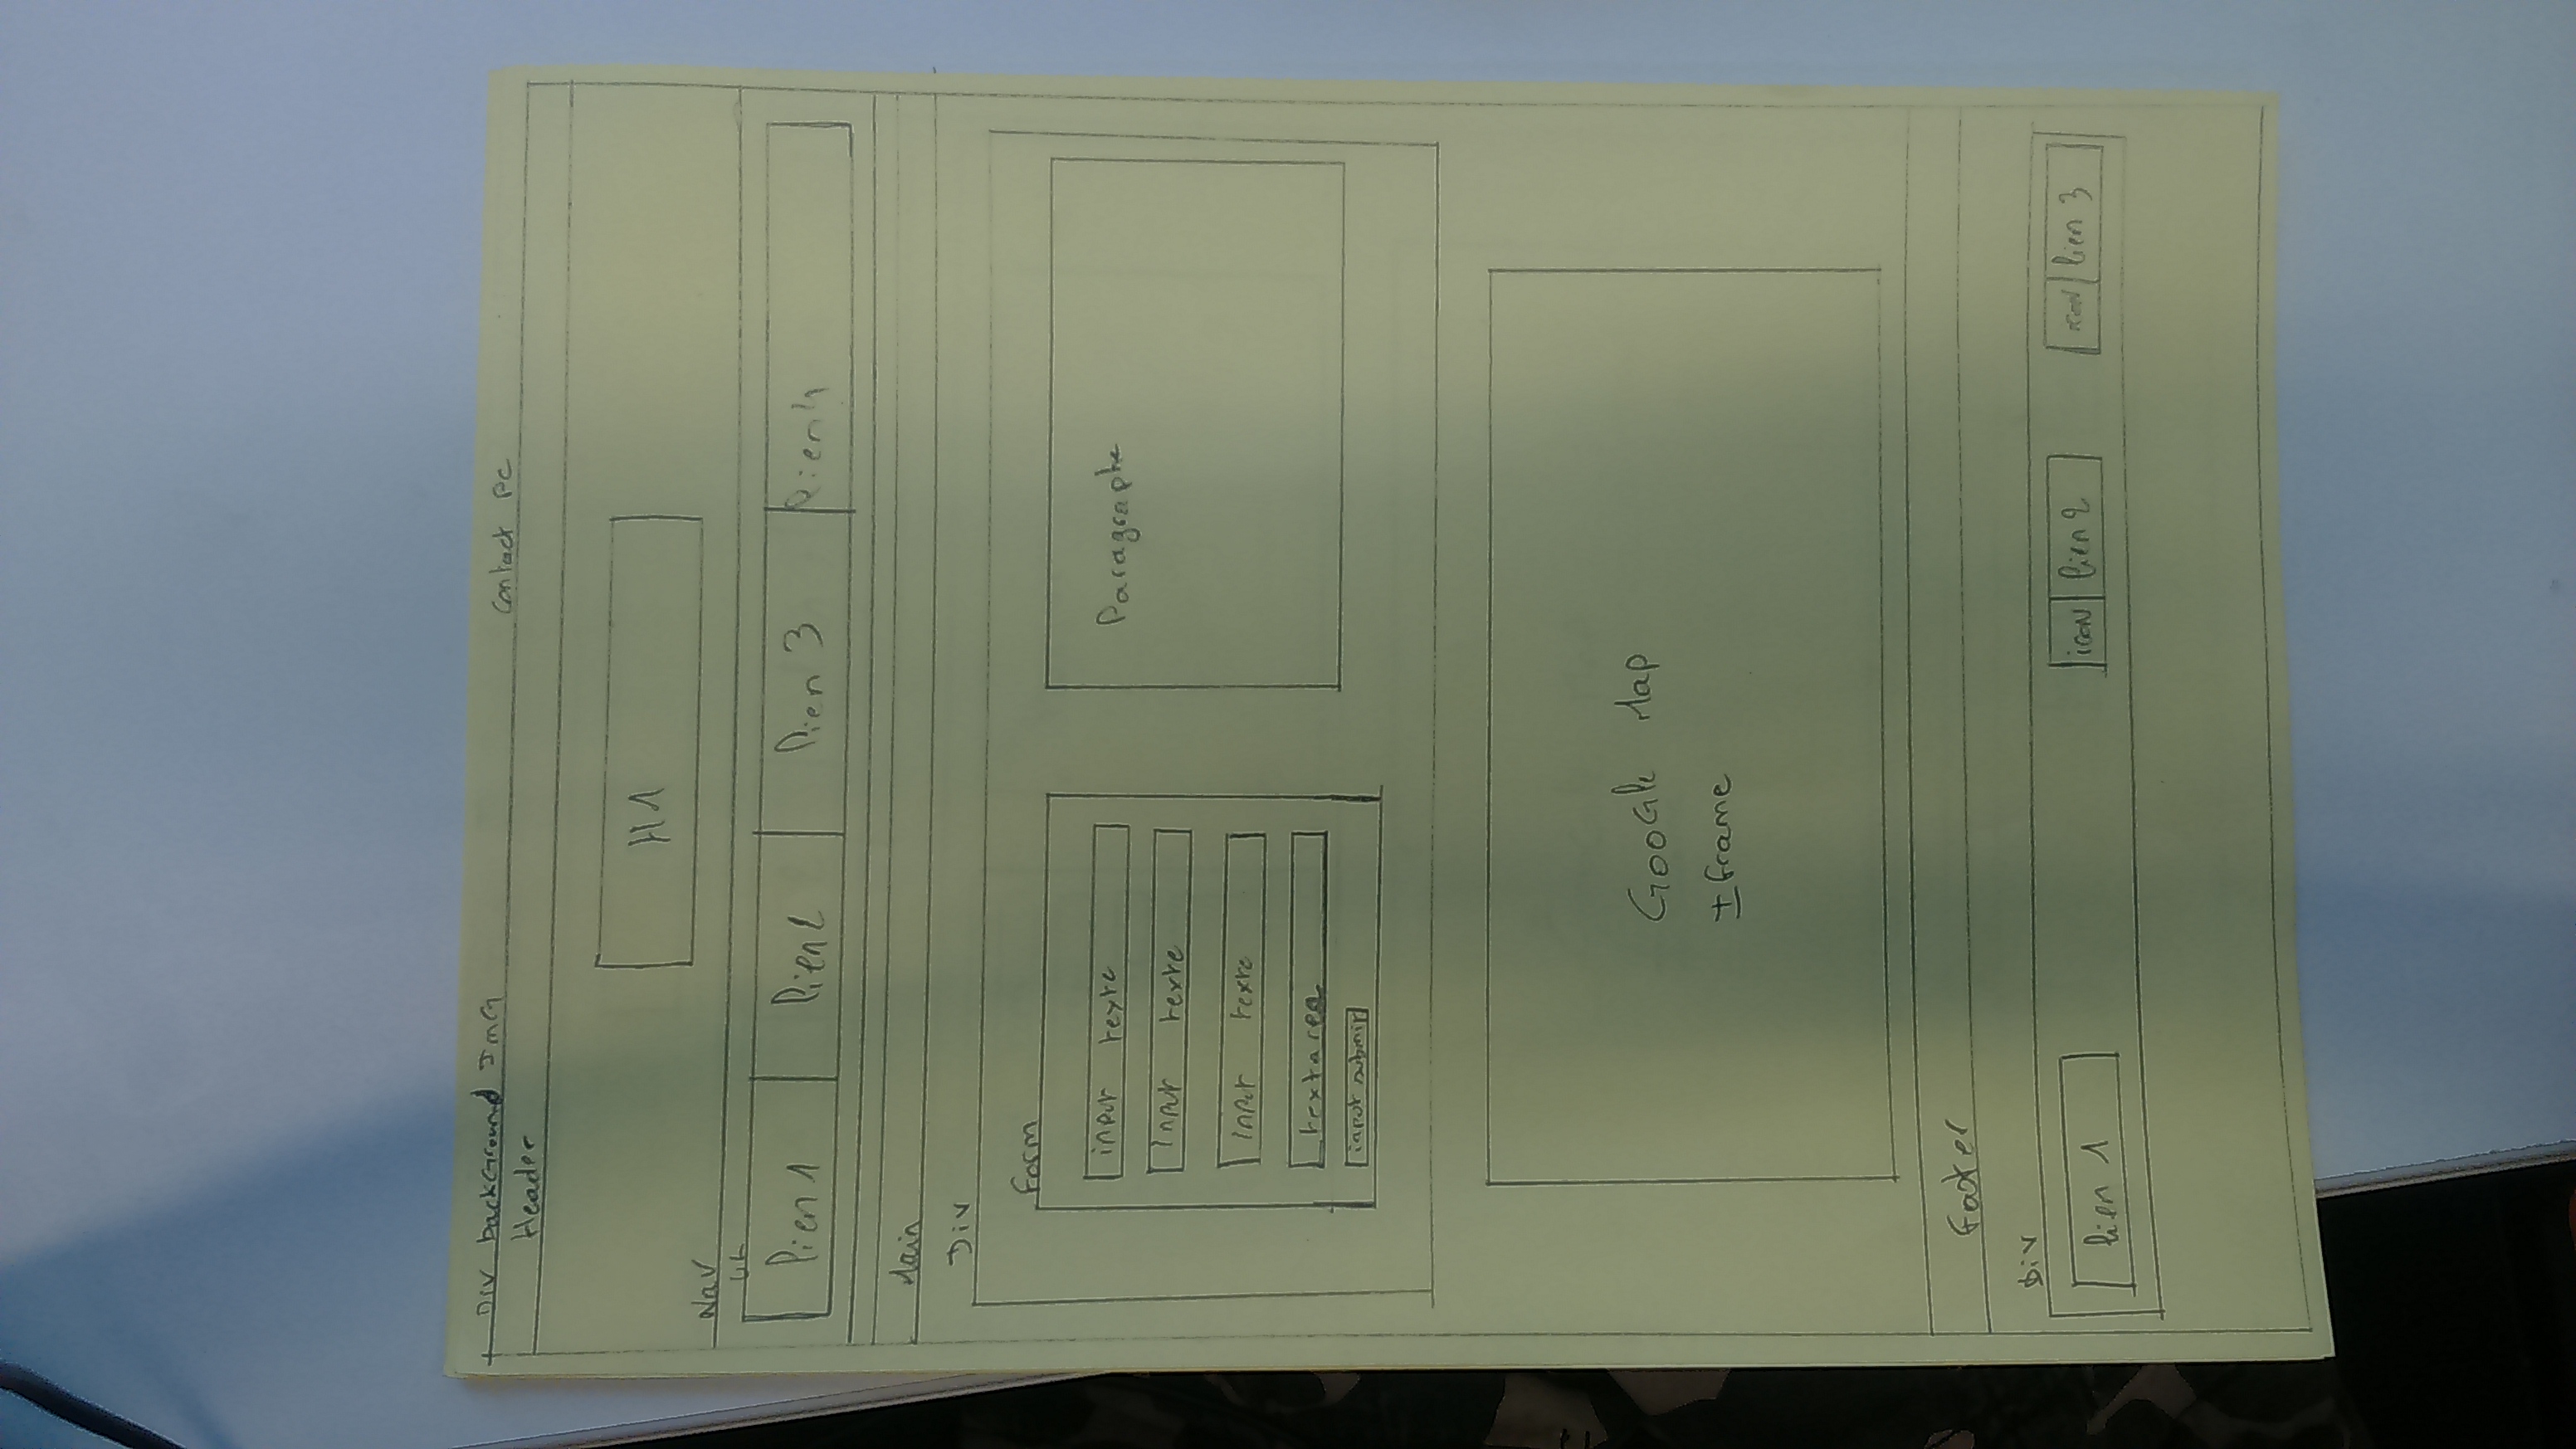 Div backGround ImG
Contact PC
Header
H1
Nav
UL
lien 1
lien 2
lien 3
lien 4
Main
Div
Form
input texte
Input texte
Input texte
textarea
input submit
Paragraphe
GooGle Map
Iframe
Footer
Div
lien 1
icon
lien 2
icon
lien 3